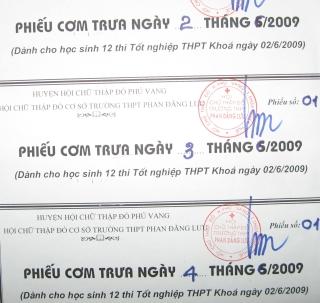 PHIẾU CƠM TRƯA NGÀY 2 THÁNG 6/2009
(Dành cho học sinh 12 thi Tốt nghiệp THPT Khoá ngày 02/6/2009)
HUYỆN HỘI CHỮ THẬP ĐỎ PHÚ VANG
HỘI CHỮ THẬP ĐỎ CƠ SỞ TRƯỜNG THPT PHAN ĐĂNG LƯU
Phiếu số: 01
HỘI
CHỮ THẬP ĐỎ
TRƯỜNG THPT
PHAN ĐĂNG LƯU
PHIẾU CƠM TRƯA NGÀY 3 THÁNG 6/2009
(Dành cho học sinh 12 thi Tốt nghiệp THPT Khoá ngày 02/6/2009)
HUYỆN HỘI CHỮ THẬP ĐỎ PHÚ VANG
HỘI CHỮ THẬP ĐỎ CƠ SỞ TRƯỜNG THPT PHAN ĐĂNG LƯU
Phiếu số: 01
HỘI
CHỮ THẬP ĐỎ
TRƯỜNG THPT
PHAN ĐĂNG LƯU
PHIẾU CƠM TRƯA NGÀY 4 THÁNG 6/2009
(Dành cho học sinh 12 thi Tốt nghiệp THPT Khoá ngày 02/6/2009)